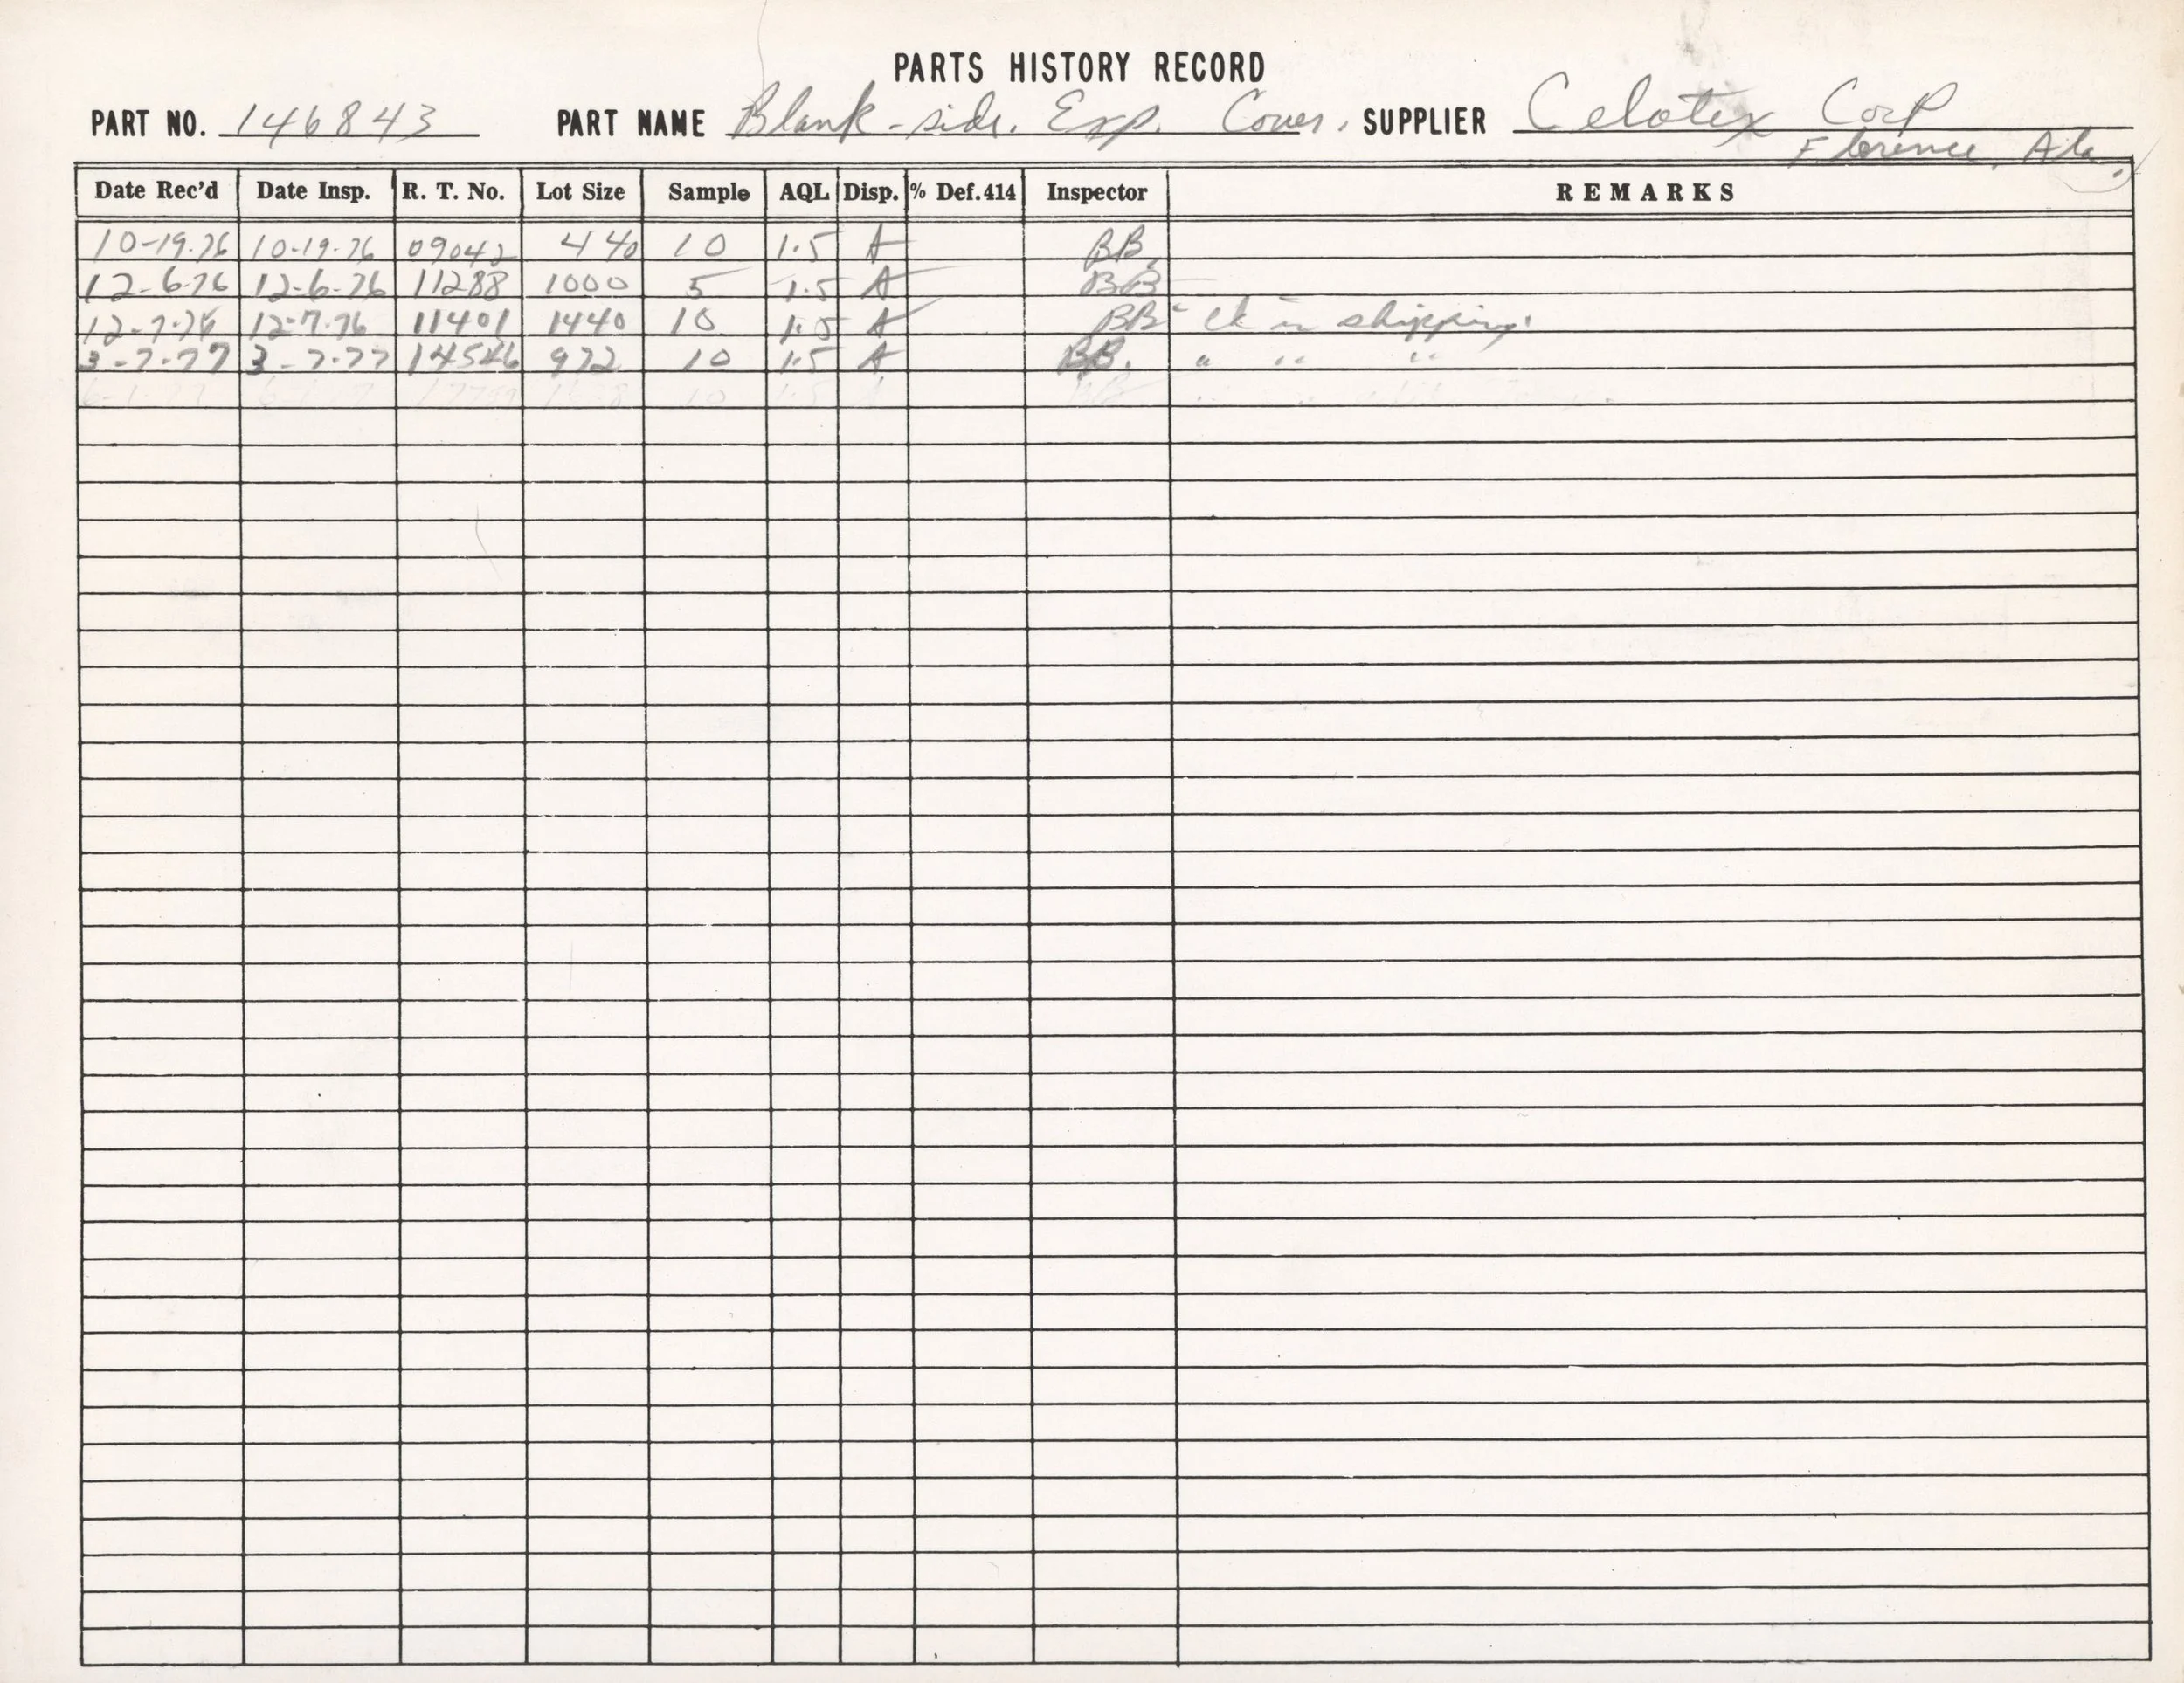 PARTS HISTORY RECORD
PART NO. 146843 PART NAME Blank-side. Exp. Cover. SUPPLIER Celotex Corp
Florence, Ala.
Date Rec'd Date Insp. R. T. No. Lot Size Sample AQL Disp. % Def.414 Inspector REMARKS
10-19-76 10-19-76 09042 440 10 1.5 A BB.
12-6-76 12-6-76 11288 1000 5 1.5 A BB
12-7-76 12-7-76 11401 1440 10 1.5 A BB - ck in shipping.
3-7-77 3-7-77 14546 972 10 1.5 A BB. " " "
10 1.5 A